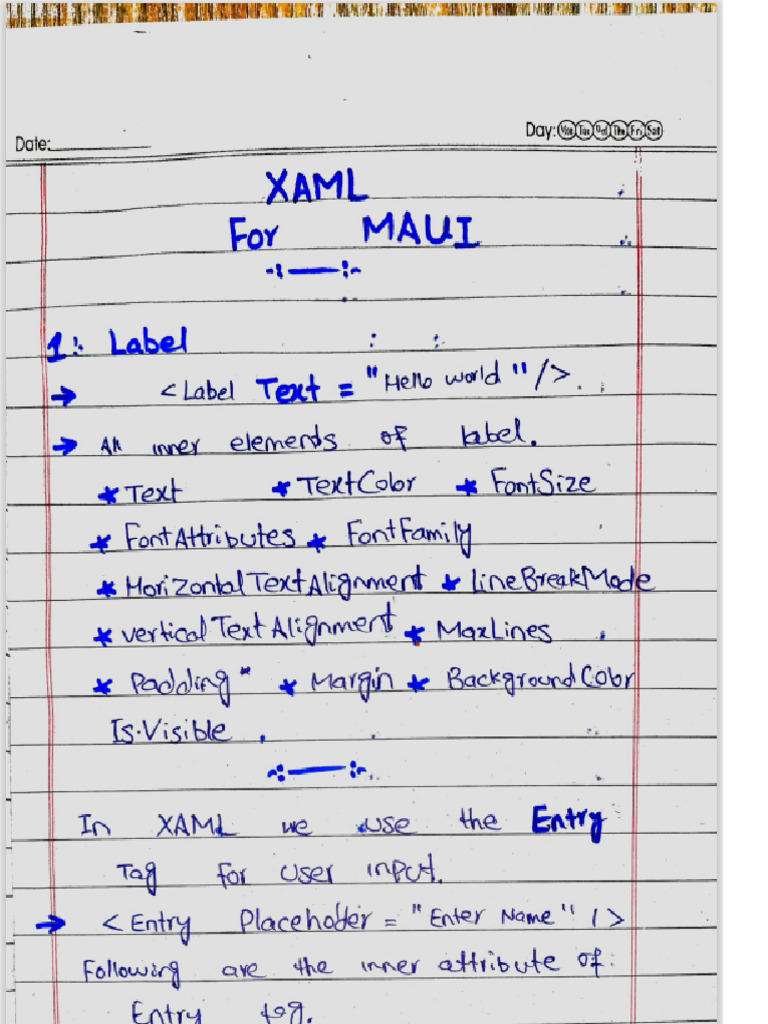 Day: Mon Tue Wed Thu Fri Sat
Date:
XAML
For MAUI
1: Label
→ <Label Text = "Hello world"/>.
→ All inner elements of label.
* Text * TextColor * FontSize
* FontAttributes * FontFamily
* HorizontalTextAlignment * LineBreakMode
* verticalTextAlignment * MaxLines
* Padding * Margin * BackgroundColor
Is.Visible
In XAML we use the Entry
Tag for user input.
→ <Entry Placeholder = "Enter Name" />
Following are the inner attribute of:
Entry tag.